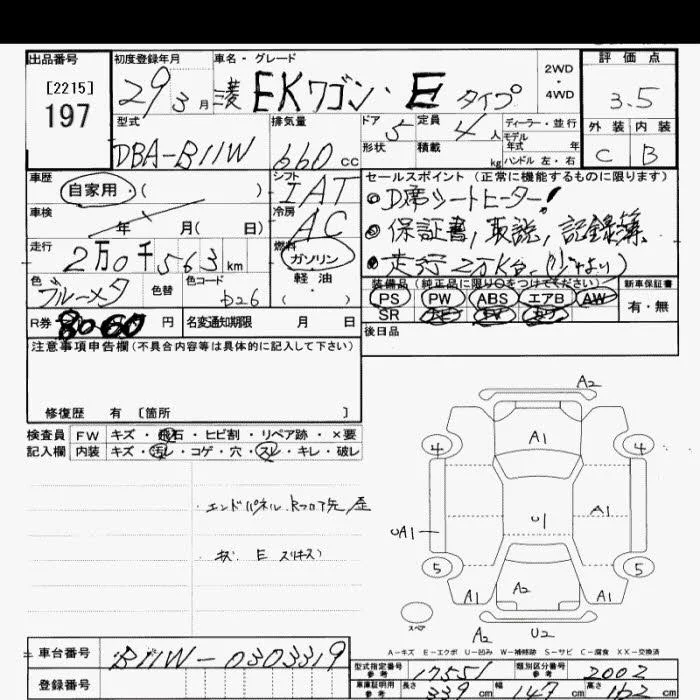 出品番号
[2215]
197
初度登録年月
29 3月
車名・グレード
三菱 EKワゴン・E タイプ
2WD
・
4WD
評価点
3.5
外装 内装
C B
型式
DBA-B11W
排気量
660 cc
ドア 5
定員 4 人
形状
積載 kg
ディーラー・並行
モデル
年式 年
ハンドル 左・右
車歴
自家用・( )
シフト
IAT
車検
年 月( 日)
冷房
AC
走行
2万0千563 km
燃料
ガソリン
軽油
( )
色
ブルーメタ
色替
色コード
D26
R券 8060 円
名変通知期限 月 日
セールスポイント (正常に機能するものに限ります)
① D席シートヒーター!
② 保証書, 取説, 記録簿
③ 走行2万K台.(少なめ)
装備品(純正品に限り○をつけてください)
PS PW ABS エアB AW
SR
新車保証書
有・無
後日品
注意事項申告欄(不具合内容等は具体的に記入して下さい)
修復歴 有 [箇所 ]
検査員 FW キズ・飛石・ヒビ割・リペア跡・×要
記入欄 内装 キズ・汚レ・コゲ・穴・スレ・キレ・破レ
・エンドパネル.Rフロア先 歪
A2
4 A1 4
UA1 U1 A1
5 5
A1 A2 A1
スペア
A2 U2
A-キズ E-エクボ U-凹み W-補修跡 S-サビ C-腐食 XX-交換済
車台番号 B11W-0303319
登録番号
型式指定番号 参考 17551
類別区分番号 参考 2002
車庫証明用 参考 長さ 339 cm 幅 147 cm 高さ 162 cm